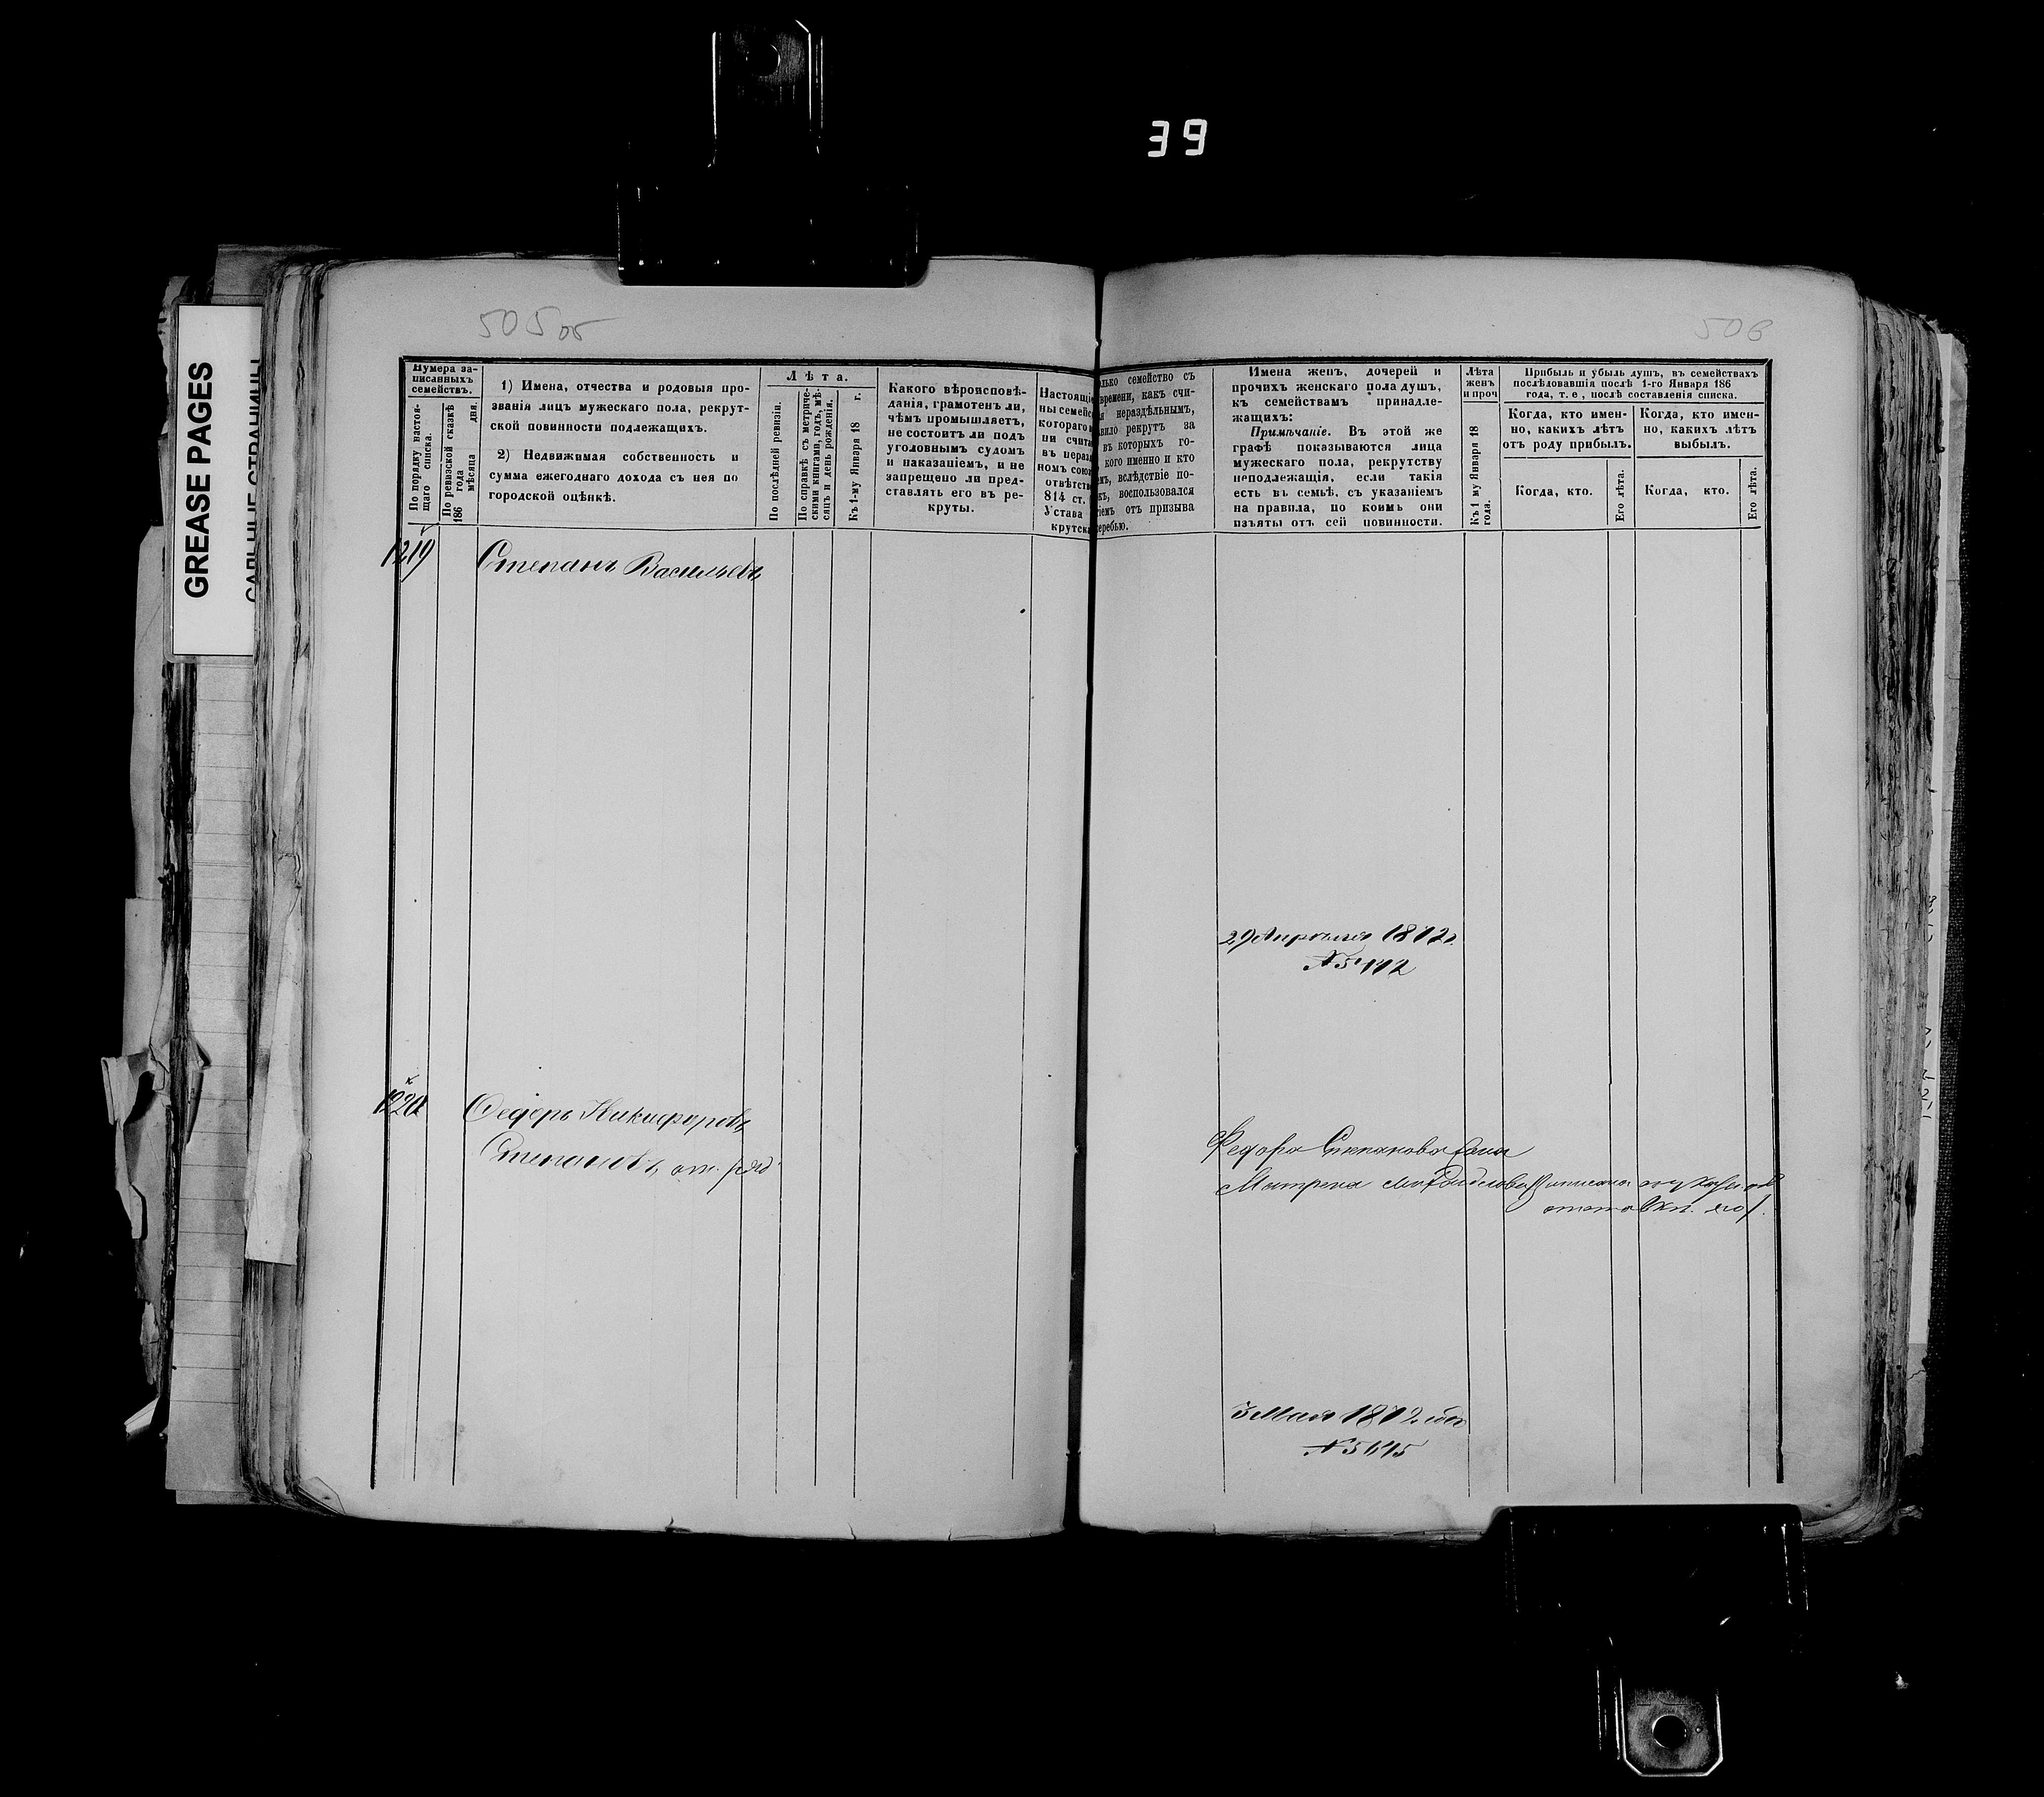 39
GREASE PAGES
505об
506
Нумера за-
писанныхъ
семействъ.
По порядку настоя-
щаго списка.
По ревизской сказкѣ
186 года
мѣсяца дня.
1) Имена, отчества и родовыя про-
званія лицъ мужескаго пола, рекрут-
ской повинности подлежащихъ.
2) Недвижимая собственность и
сумма ежегоднаго дохода съ нея по
городской оцѣнкѣ.
Лѣта.
По послѣдней ревизіи.
По справкѣ съ метриче-
скими книгами, годъ, мѣ-
сяцъ и день рожденія.
Къ 1-му Января 18 г.
Какого вѣроисповѣ-
данія, грамотенъ ли,
чѣмъ промышляетъ,
не состоитъ ли подъ
уголовнымъ судомъ
и наказаніемъ, и не
запрещено ли пред-
ставлять его въ ре-
круты.
Настоящіе
ны семейс
котораго
ни счита
въ нераз
номъ сою
отвѣтств
814 ст.
Устава
крутск
олько семейство съ
времени, какъ счи-
я нераздѣльнымъ,
авило рекрутъ за
въ которыхъ го-
кого именно и кто
емъ, вслѣдствіе по-
къ, воспользовался
іемъ отъ призыва
жеребью.
Имена женъ, дочерей и
прочихъ женскаго пола душъ,
къ семействамъ принадле-
жащихъ:
Примѣчаніе. Въ этой же
графѣ показываются лица
мужескаго пола, рекрутству
неподлежащія, если такія
есть въ семьѣ, съ указаніемъ
на правила, по коимъ они
изъяты отъ сей повинности.
Лѣта
женъ
и проч
Къ 1 му Января 18
года.
Прибыль и убыль душъ, въ семействахъ
послѣдовавшія послѣ 1-го Января 186
года, т. е, послѣ составленія списка.
Когда, кто имен-
но, какихъ лѣтъ
отъ роду прибылъ.
Когда, кто имен-
но, какихъ лѣтъ
выбылъ.
Когда, кто.
Его лѣта.
Когда, кто.
Его лѣта.
1219
Степанъ Васильевъ
29 Апрѣля 1872г.
1220
Ѳедоръ Никифоровъ
Степановъ, от. ряд
Федора Степанова
Матрена
3 Мая 1872 года
№ 5645